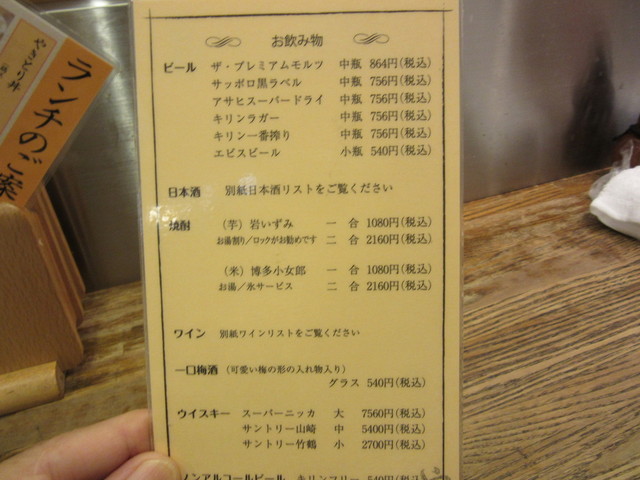 お飲み物
ビール ザ・プレミアムモルツ 中瓶 864円(税込)
サッポロ黒ラベル 中瓶 756円(税込)
アサヒスーパードライ 中瓶 756円(税込)
キリンラガー 中瓶 756円(税込)
キリン一番搾り 中瓶 756円(税込)
エビスビール 小瓶 540円(税込)
日本酒 別紙日本酒リストをご覧ください
焼酎 (芋)岩いずみ 一合 1080円(税込)
お湯割り/ロックがお勧めです 二合 2160円(税込)
(米)博多小女郎 一合 1080円(税込)
お湯/氷サービス 二合 2160円(税込)
ワイン 別紙ワインリストをご覧ください
一口梅酒 (可愛い梅の形の入れ物入り)
グラス 540円(税込)
ウイスキー スーパーニッカ 大 7560円(税込)
サントリー山崎 中 5400円(税込)
サントリー竹鶴 小 2700円(税込)
ノンアルコールビール キリンフリー 540円(税込)
やきとり丼
ランチのご案